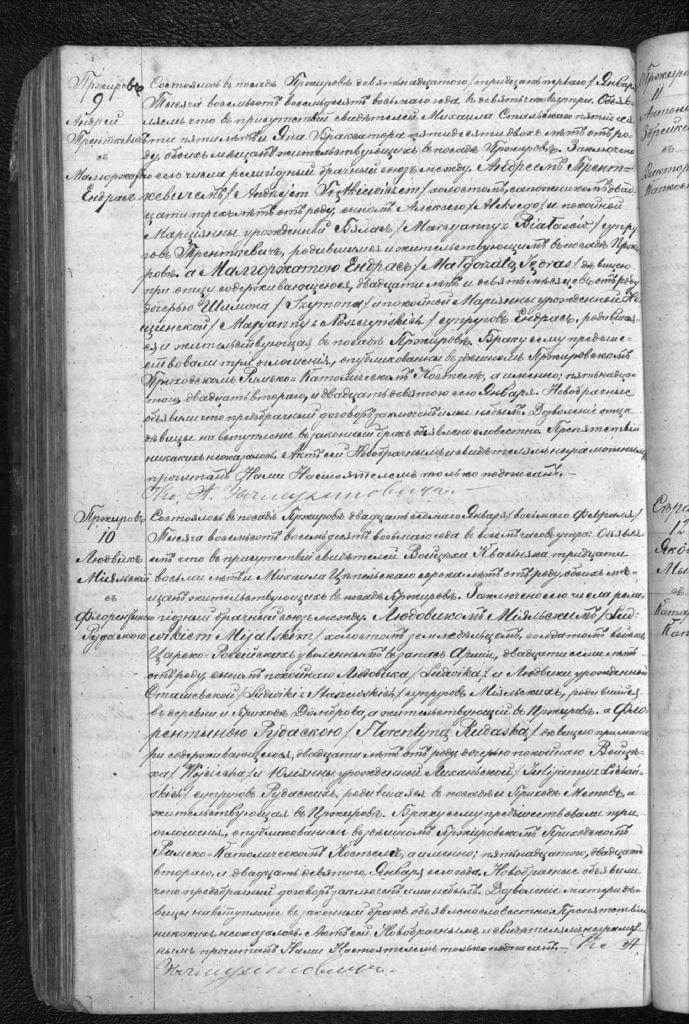 Пржировъ
9
Андрей
Тренткевичъ
съ
Малгоржатою
Ендрасъ
Состоялось въ посадѣ Пржировѣ девятнадцатого /тридцать перваго/ Января
Тысяча восемьсотъ восемьдесятъ восьмаго года въ девять часовъ утра. Объяв-
ляемъ что въ присутствіи свидѣтелей Михаила Стальскаго пятиде-
сяти пяти лѣтъ и Яна Браксатора пятидесяти двохъ лѣтъ отъ ро-
ду, обоихъ мещанъ жительствующихъ въ посадѣ Пржировѣ. Заключено
сего числа религіозный брачный союзъ между Андреемъ Трент-
кевичемъ /Andrejem Trętkiewiczem/ холостомъ, сапожникомъ двад-
цати трехъ лѣтъ отъ роду, сыномъ Алексего /Aleksego/ и покойной
Марціанны урожденной Бялась /Maryanny z Białasiów/ супру-
говъ Тренткевичъ, родившимся и жительствующимъ въ посадѣ Пржи-
ровѣ, а Малгоржатою Ендрасъ /Małgorzatą Jędras/ дѣвицею
при отцѣ содерживающеюся, двадцати лѣтъ и девять мѣсяцевъ отъ роду
дочерью Шимона /Szymona/ и покойной Маріанны урожденной Но-
щинской /Maryanny z Noszczyńskich/ супруговъ Ендрасъ, родившая-
ся и жительствующая въ посадѣ Пржировѣ. Браку сему предше-
ствовали три оглошенія, опубликованныя въ здѣшнемъ Пржировскомъ
Приходскомъ Римско-Католическомъ Костелѣ, а именно: пятьнадца-
того, двадцать втораго, и двадцать девятого сего Января. Новобрачные
объявили что предбрачный договоръ заключенъ ими небылъ. Дозволеніе отца
дѣвицы на вступленіе въ законный бракъ объявлено словестно. Препятствій
никакихъ неоказалось. Актъ сей Новобрачнымъ и свидѣтелямъ неграмотнымъ
прочитанъ Нами Настоятелемъ только подписанъ. —
Кс. А.
Пржировъ
10
Людвикъ
Міяльскій
съ
Флорентыною
Рудаскою
Состоялось въ посадѣ Пржировѣ двадцать седьмаго Января /восьмаго Февраля/
Тысяча восемьсотъ восемьдесятъ восьмаго года въ восемь часовъ утра. Объявля-
емъ что въ присутствіи свидѣтелей Войцѣха Квасьняка тридцати
восьми лѣтъ и Михаила Цѣпельскаго сорока лѣтъ отъ роду обоихъ мѣ-
щанъ жительствующихъ въ посадѣ Пржировѣ. Заключено сего числа рели-
гіозный брачный союзъ между Людовикомъ Міяльскимъ /Lud-
wikiem Mijalskim/ холостомъ земледѣльцемъ, солдатомъ войскъ
Царско-Россійскихъ уволеннымъ въ запасъ Арміи, двадцати семи лѣтъ
отъ роду, сыномъ покойнаго Людовика /Ludwika/ и Людвики урожденной
Сташевской /Ludwiki z Staszewskich/ супруговъ Міяльскихъ, родившимся
въ деревни и Приходѣ Домброва, а жительствующій въ Пржировѣ. а Фло-
рентыною Рудаскою /Florentyną Rudaską/ дѣвицею при мате-
ри содерживающеюся, двадцати лѣтъ отъ роду дочерью покойнаго Войцѣ-
ха /Wojciecha/ и Юліянны урожденной Лиханьской /Julijanny z Lichań-
skich/ супруговъ Рудаскихъ, родившаяся въ посадѣ и Приходѣ Мстовъ, а
жительствующая въ Пржировѣ. Браку сему предшествовали три
оглошенія, опубликованныя въ здѣшнемъ Пржировскомъ Приходскомъ
Римско-Католическомъ Костелѣ, а именно: пятьнадцатого, двадцать
втораго, и двадцать девятого Января сего года. Новобрачные объявили
что предбрачный договоръ заключенъ ими небылъ. Дозволеніе матери дѣ-
вицы на вступленіе въ законный бракъ объявлено словестно. Препятствій
никакихъ неоказалось. Актъ сей Новобрачнымъ и свидѣтелямъ неграмот-
нымъ прочитанъ Нами Настоятелемъ только подписанъ. — Кс. А.
Пржировъ
11
Антоні
съ
12
съ